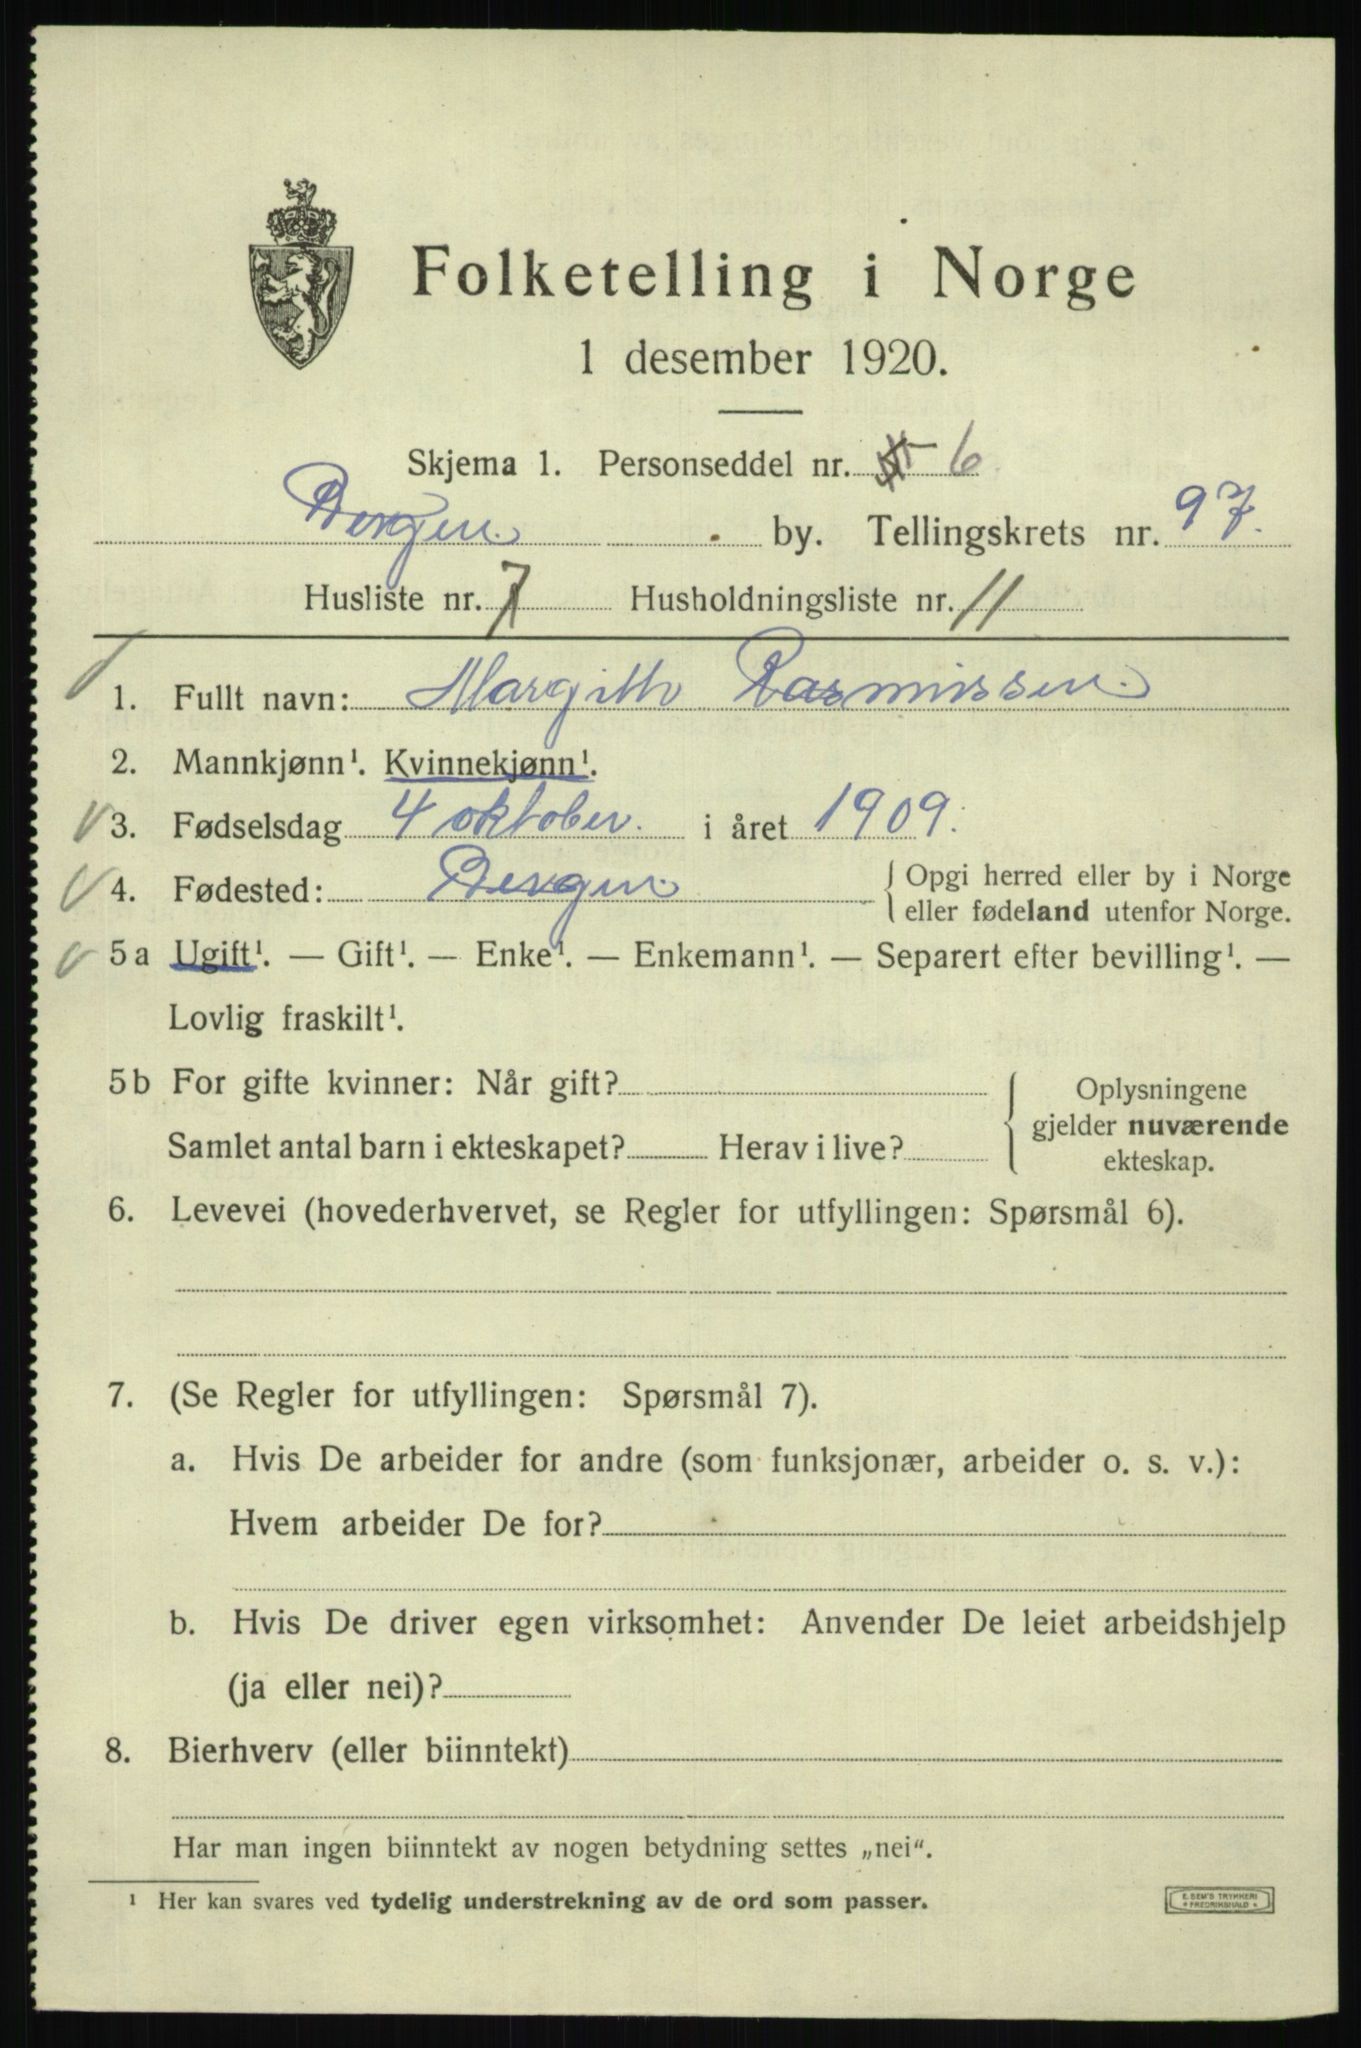 Folketelling i Norge
1 desember 1920.
Skjema 1. Personseddel nr. 6
Bergen. by. Tellingskrets nr. 97.
Husliste nr. 7 Husholdningsliste nr. 11
1. Fullt navn: Margith Rasmussen.
2. Mannkjønn¹. Kvinnekjønn¹.
3. Fødselsdag 4 oktober. i året 1909.
4. Fødested: Bergen { Opgi herred eller by i Norge
eller fødeland utenfor Norge.
5a Ugift¹. — Gift¹. — Enke¹. — Enkemann¹. — Separert efter bevilling¹. —
Lovlig fraskilt¹.
5b For gifte kvinner: Når gift? { Oplysningene
gjelder nuværende
Samlet antal barn i ekteskapet? Herav i live?
ekteskap.
6. Levevei (hovederhvervet, se Regler for utfyllingen: Spørsmål 6).
7. (Se Regler for utfyllingen: Spørsmål 7).
a. Hvis De arbeider for andre (som funksjonær, arbeider o. s. v.):
Hvem arbeider De for?
b. Hvis De driver egen virksomhet: Anvender De leiet arbeidshjelp
(ja eller nei)?
8. Bierhverv (eller biinntekt)
Har man ingen biinntekt av nogen betydning settes „nei“.
¹ Her kan svares ved tydelig understrekning av de ord som passer.
E. SEM'S TRYKKERI
* FREDRIKSHALD *